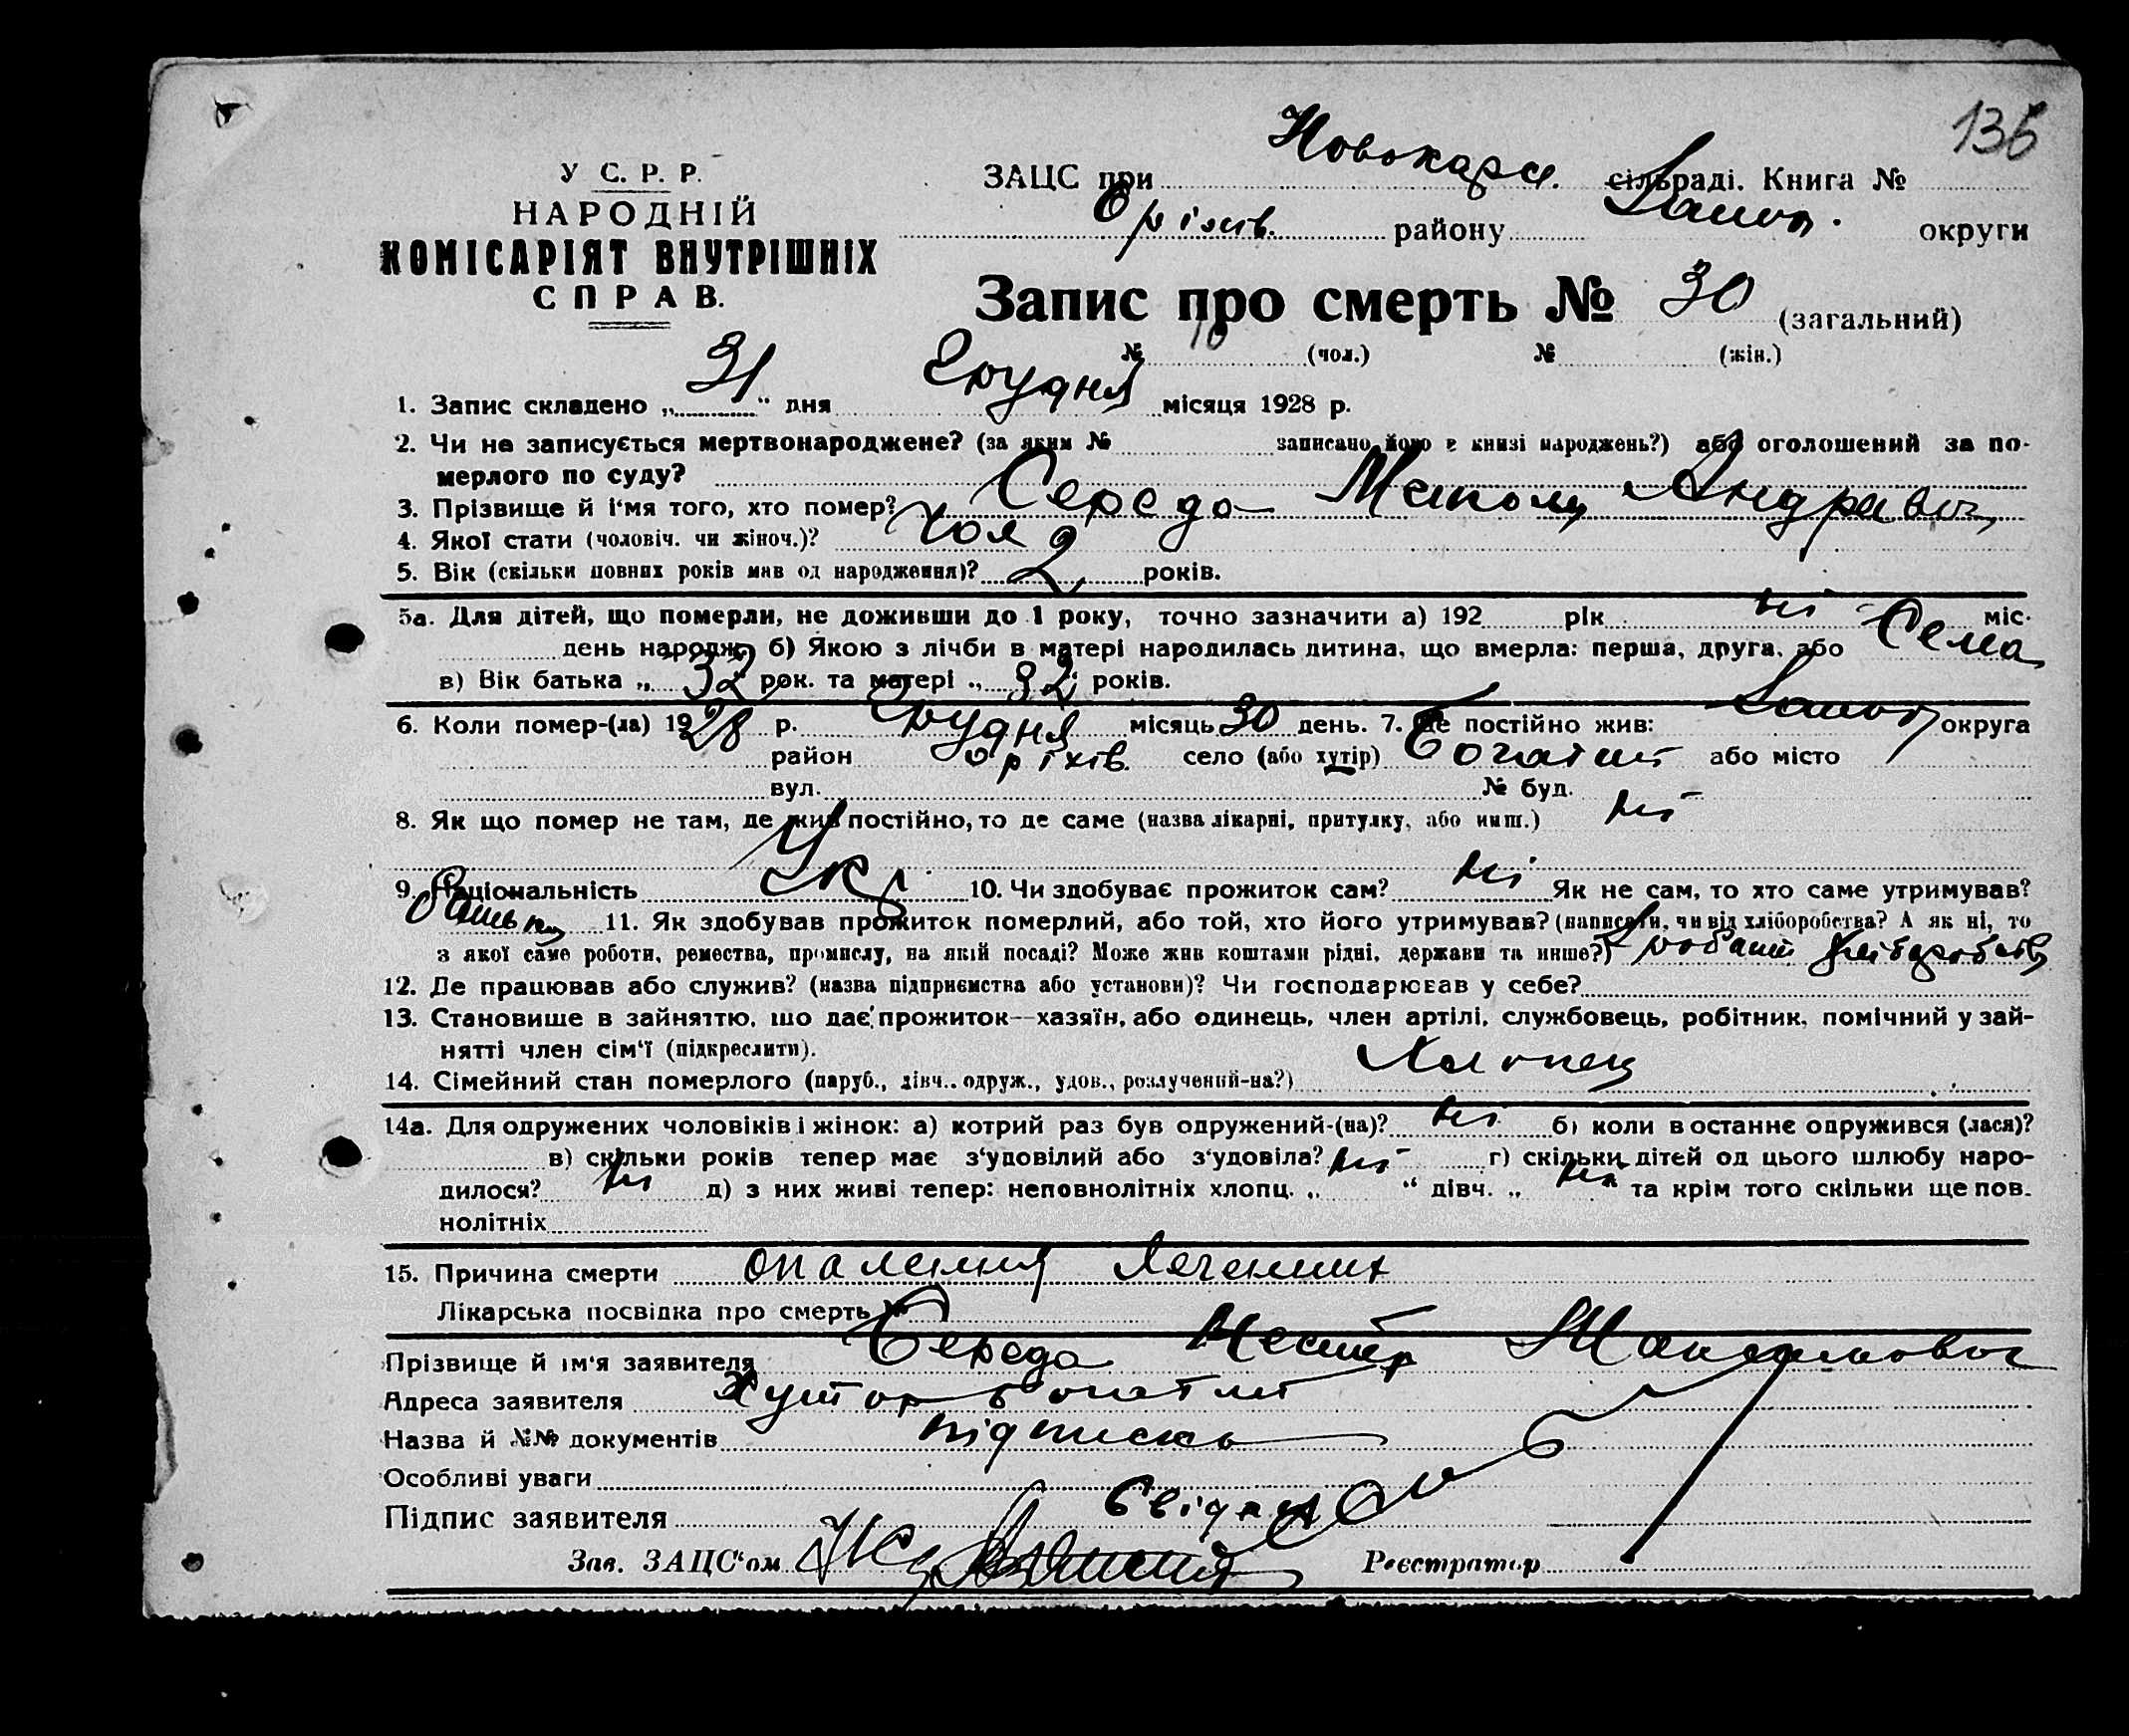 136
У С. Р. Р.
НАРОДНІЙ
КОМІСАРІЯТ ВНУТРІШНІХ
СПРАВ.
ЗАЦС при Новокарл. сільраді. Книга №
Оріхів. району Запор. округи
Запис про смерть № 30 (загальний)
№ 16 (чол.) № (жін.)
1. Запис складено „ 31 “ дня Грудня місяця 1928 р.
2. Чи не записується мертвонароджене? (за яким № записано його в книзі народжень?) або оголошений за по-
мерлого по суду?
3. Прізвище й і'мя того, хто помер? Середа Микола Андрієвич
4. Якої стати (чоловіч. чи жіноч.)? Чол
5. Вік (скільки повних років мав од народження)? 2 років.
5а. Для дітей, що померли, не доживши до 1 року, точно зазначити а) 192 рік ні міс.
день народж. б) Якою з лічби в матері народилась дитина, що вмерла: перша, друга, або Сема
в) Вік батька „ 32 рок. та матері „ 32 років.
6. Коли помер-(ла) 1928 р. Грудня місяць 30 день. 7. Де постійно жив: Запор округа
район Оріхів. село (або хутір) Богатий або місто
вул. № буд.
8. Як що помер не там, де жив постійно, то де саме (назва лікарні, притулку, або инш.) ні
9. Національність Укр. 10. Чи здобуває прожиток сам? ні Як не сам, то хто саме утримував?
батько 11. Як здобував прожиток померлий, або той, хто його утримував? (написати, чи від хліборобства? А як ні, то
з якої саме роботи, ремества, промислу, на якій посаді? Може жив коштами рідні, держави та инше?)
12. Де працював або служив? (назва підприємства або установи)? Чи господарював у себе?
13. Становище в зайняттю, що дає прожиток—хазяїн, або одинець, член артілі, службовець, робітник, помічний у зай-
нятті член сім'ї (підкреслити).
14. Сімейний стан померлого (паруб., дівч., одруж., удов., розлучений-на?) Хлопец
14а. Для одружених чоловіків і жінок: а) котрий раз був одружений-(на)? ні б) коли в останнє одружився (лася)?
в) скільки років тепер має з'удовілий або з'удовіла? ні г) скільки дітей од цього шлюбу наро-
дилося? ні д) з них живі тепер: неповнолітніх хлопц. „ “ дівч. „ ні “ та крім того скільки ще пов-
нолітніх
15. Причина смерти опалення
Лікарська посвідка про смерть №
Прізвище й ім'я заявителя Середа Нестер Максимович
Адреса заявителя Хутор Богатий
Назва й №№ документів
Особливі уваги
Підпис заявителя
Зав. ЗАЦС'ом Реєстратор